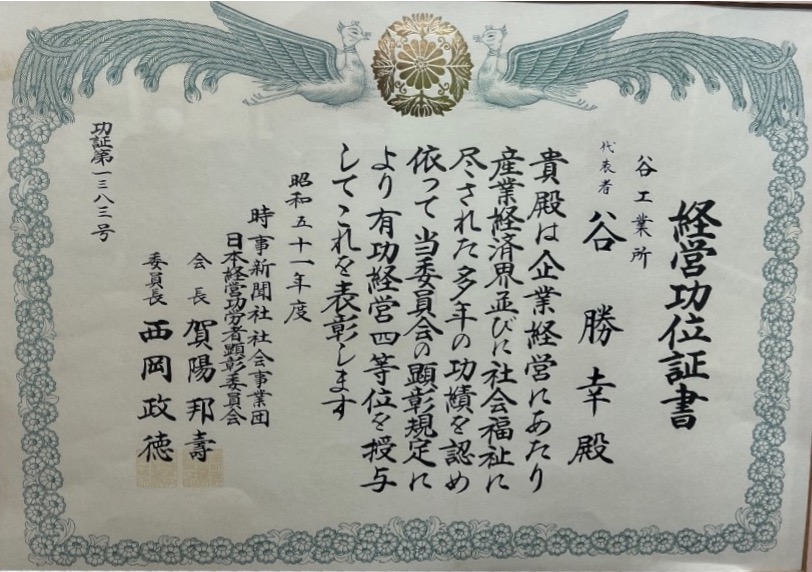 経営功位証書
谷工業所
代表者 谷勝幸殿
貴殿は企業経営にあたり
産業経済界並びに社会福祉に
尽された多年の功績を認め
依って当委員会の顕彰規定に
より有功経営四等位を授与
してこれを表彰します
昭和五十一年度
時事新聞社社会事業団
日本経営功労者顕彰委員会
会長 賀陽邦壽
委員長 西岡政徳
功証第一三八三号